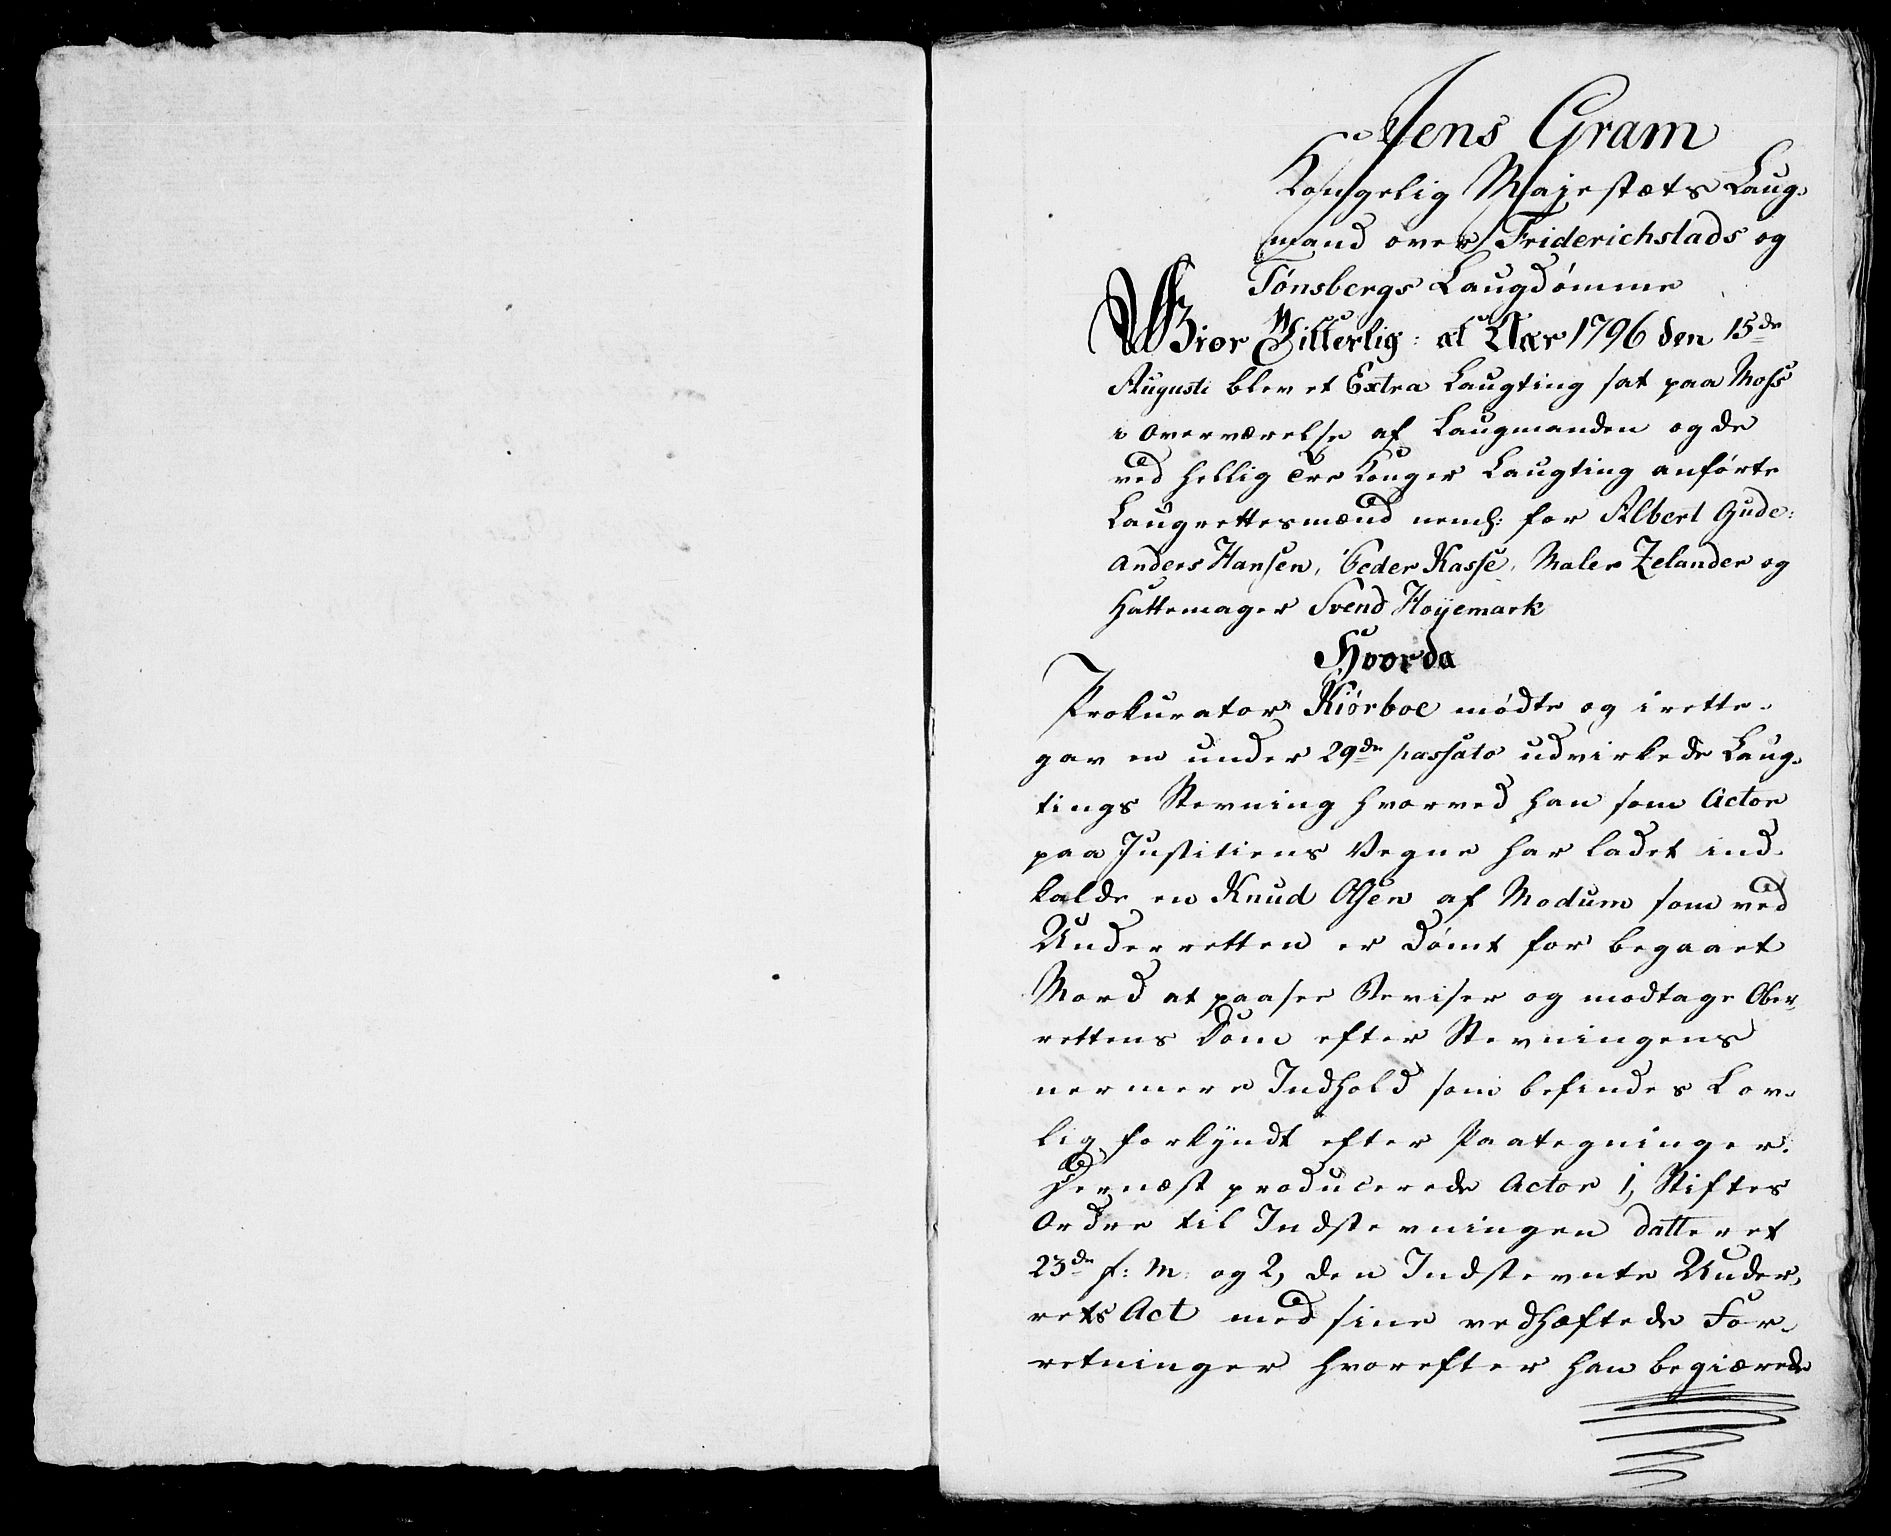 Jens Gram
Kongelig Majestæts Laug-
mand over Friderichstads og
Tønsbergs Laugdømme
Giør Vitterlig: at Aar 1796 den 15de
Augusti blev et Extra Laugting sat paa Moss
i Overværelse af Laugmanden og de
ved Hellig Tre Konger Laugting anførte
Laugrettesmænd neml: for Albert Gude:
Anders Hansen, Peder Kasse, Maler Zelander og
Hattemager Svend Høyemark
Hvorda
Prokurator Kiørboe mødte og irette-
gav en under 29de passato udvirkede Laug-
tings Stevning hvorved han som Actor
paa Justitiens Vegne har ladet ind-
kalde en Knud Olsen af Modum som ved
Underretten er dømt for begaaet
Mord at paasee Beviser og modtage Ober-
rettens Dom efter Stevningens
nermere Indhold som befindes Lov-
lig forkyndt efter Paategninger.
Dernæst producerede Actor 1, Stiftes
Ordre til Indstevningen datteret
23de f: M: og 2, den Indstevnte Under-
rets Act med sine vedhæftede For-
retninger hvorefter han begiærede